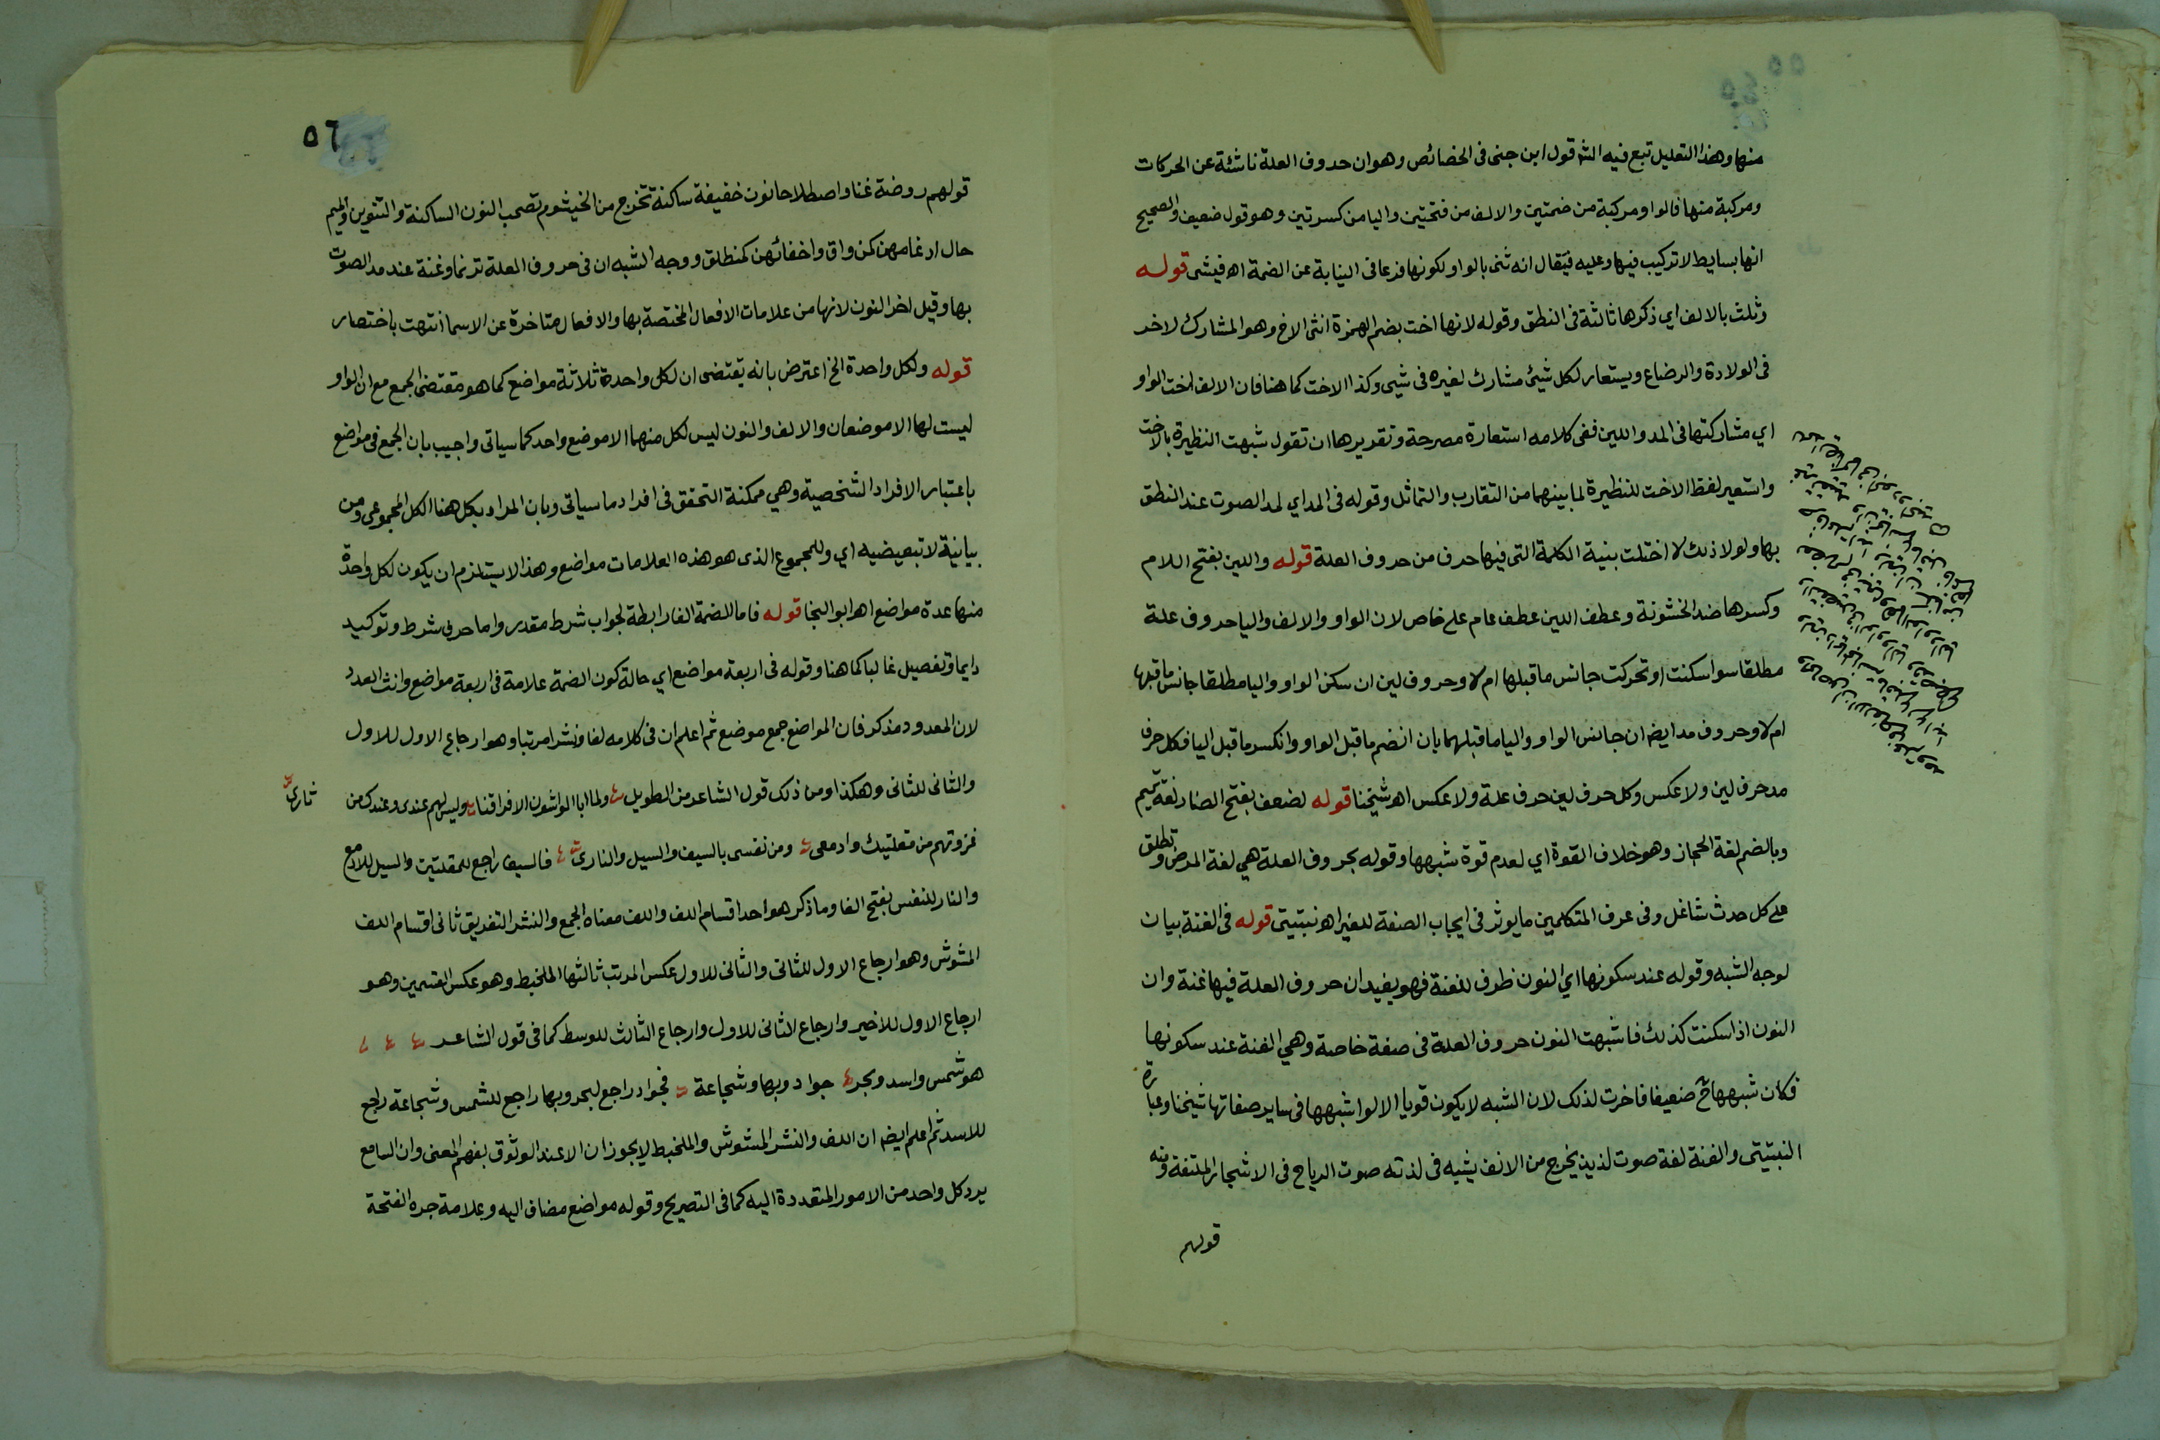 منها وهذا التعليل تبع فيه الش قول ابن جنى فى الخصائص وهو ان حدوف العلة ناشئة عن الحركات
ومركبة منها قالوا ومركبة من ضمتين والالف من فتحتين واليا من كسرتين وهو قول ضعيف والصحيح
انها بسايط لا تركيب فيها وعليه فيقال انه ثنى بالواو لكونها فرعا فى النيابة عن الضمة اه فيشى قوله
وثلث بالالف اي ذكرها ثالثة فى النطق وقوله لانها اخت بضم الهمزة انثى الاخ وهو المشارك لاخر
فى الولادة والرضاع ويستعار لكل شيئ مشارك لغيره فى شيى وكذا الاخت كما هنا فان الالف اخت الواو
اي مشاركتها فى المد واللين ففى كلامه استعارة مصرحة وتقريرها ان تقول شبهت النظيرة بالاخت
واستعير لفظ الاخت للنظيرة لما بينهما من التقارب والتماثل وقوله فى المد اي لمد الصوت عند النطق
بها ولولا ذلك لا اختلت بنية الكلمة التى فيها حرف من حدوف العلة قوله واللين بفتح اللام
وكسرها ضد الخشونة وعطف اللين عطف عام على خاص لان الواو والالف واليا حروف علة
مطلقا سوا سكنت او تحركت جانس ما قبلها ام لا وحروف لين ان سكن الواو واليا مطلقا جانس ما قبلها
ام لا وحروف مد ايضا ان جانس الواو واليا ما قبلهما بان انضم ما قبل الواو وانكسر ما قبل اليا فكل حرف
مد حرف لين ولا عكس وكل حرف لين حرف علة ولا عكس اه شيخنا قوله لضعف بفتح الضاد لغة تميم
وبالضم لغة الحجاز وهو خلاف القوة اي لعدم قوة شبهها وقوله بحروف العلة هي لغة المرض وتطلق
على كل حدث شاغل وفى عرف المتكلمين ما يوثر فى ايجاب الصفة للغير اه نبتيتى قوله فى الغنة بيان
لوجه الشبه وقوله عند سكونها اي النون ظرف للغنة فهو يفيد ان حروف العلة فيها غنة وان
النون اذا سكنت كذلك فاشبهت النون حروف العلة فى صفة خاصة وهي الغنة عند سكونها
فكان شبهها ح ضعيفا فاخرت لذلك لان الشبه لا يكون قويا الا لو اشبهها فى ساير صفاتها شيخنا وعبارة
النبتيتى والغنة لغة صوت لذيذ يخرج من الانف يشبه فى لذته صوت الرياح فى الاشجار الملتفة ومنه
قولهم
٥٦
قولهم روضة غنا واصطلاحا نون خفيفة ساكنة تخرج من الخيشوم تصحب النون الساكنة والتنوين والميم
حال ادغامهن كمن واق واخفائهن كمنطلق ووجه الشبه ان فى حروف العلة ترنما وغنة عند مد الصوت
بها وقيل اخر النون لانها من علامات الافعال المختصة بها والافعال متاخرة عن الاسما انتهت باختصار
قوله ولكل واحدة الخ اعترض بانه يقتضى ان لكل واحدة ثلاثة مواضع كما هو مقتضى الجمع مع ان الواو
ليست لها الا موضعان والالف والنون ليس لكل منهما الا موضع واحد كما سياتى واجيب بان الجمع فى مواضع
باعتبار الافراد الشخصية وهي ممكنة التحقق فى افراد ما سياتى وبان المراد بكل هنا الكل المجموعى ومن
بيانية لا تبعيضيه اي وللمجموع الذى هو هذه العلامات مواضع وهذا لا يستلزم ان يكون لكل واحدة
منها عدة مواضع اه ابو النجا قوله فاما للضمة الفا رابطة لجواب شرط مقدر واما حرف شرط وتوكيد
دايما وتفصيل غالبا كما هنا وقوله فى اربعة مواضع اي حالة كون الضمة علامة فى اربعة مواضع وانث العدد
لان المعدود مذكر فان المواضع جمع موضع ثم اعلم ان فى كلامه لفا ونشرا مرتبا وهو ارجاع الاول للاول
والثانى للثانى وهكذا ومن ذلك قول الشاعر من الطويل ولما ابا الواشون الا فراقنا وليس لهم عندى وعندك من
ثارى
غزوتهم من مقلتيك وادمعى ومن نفسى بالسيف والسيل والنارى فالسيف راجع للمقلتين والسيل للادمع
والنار للنفس بفتح الفا وما ذكر هو احد اقسام اللف واللف معناه الجمع والنشر التفريق ثانى اقسام اللف
المشوش وهو ارجاع الاول للثانى والثانى للاول عكس المرتب ثالثها الملخبط وهو عكس القسمين وهو
ارجاع الاول للاخير وارجاع الثانى للاول وارجاع الثالث للوسط كما فى قول الشاعر
هو شمس واسد وبحر جواد وبها وشجاعة فجواد راجع لبحر وبها راجع للشمس وشجاعة راجع
للاسد ثم اعلم ايضا ان اللف والنشر المشوش والملخبط لا يجوزان الا عند الوثوق بفهم المعنى وان السامع
يرد كل واحد من الامور المتعددة اليه كما فى التصريح وقوله مواضع مضاف اليه وعلامة جره الفتحة